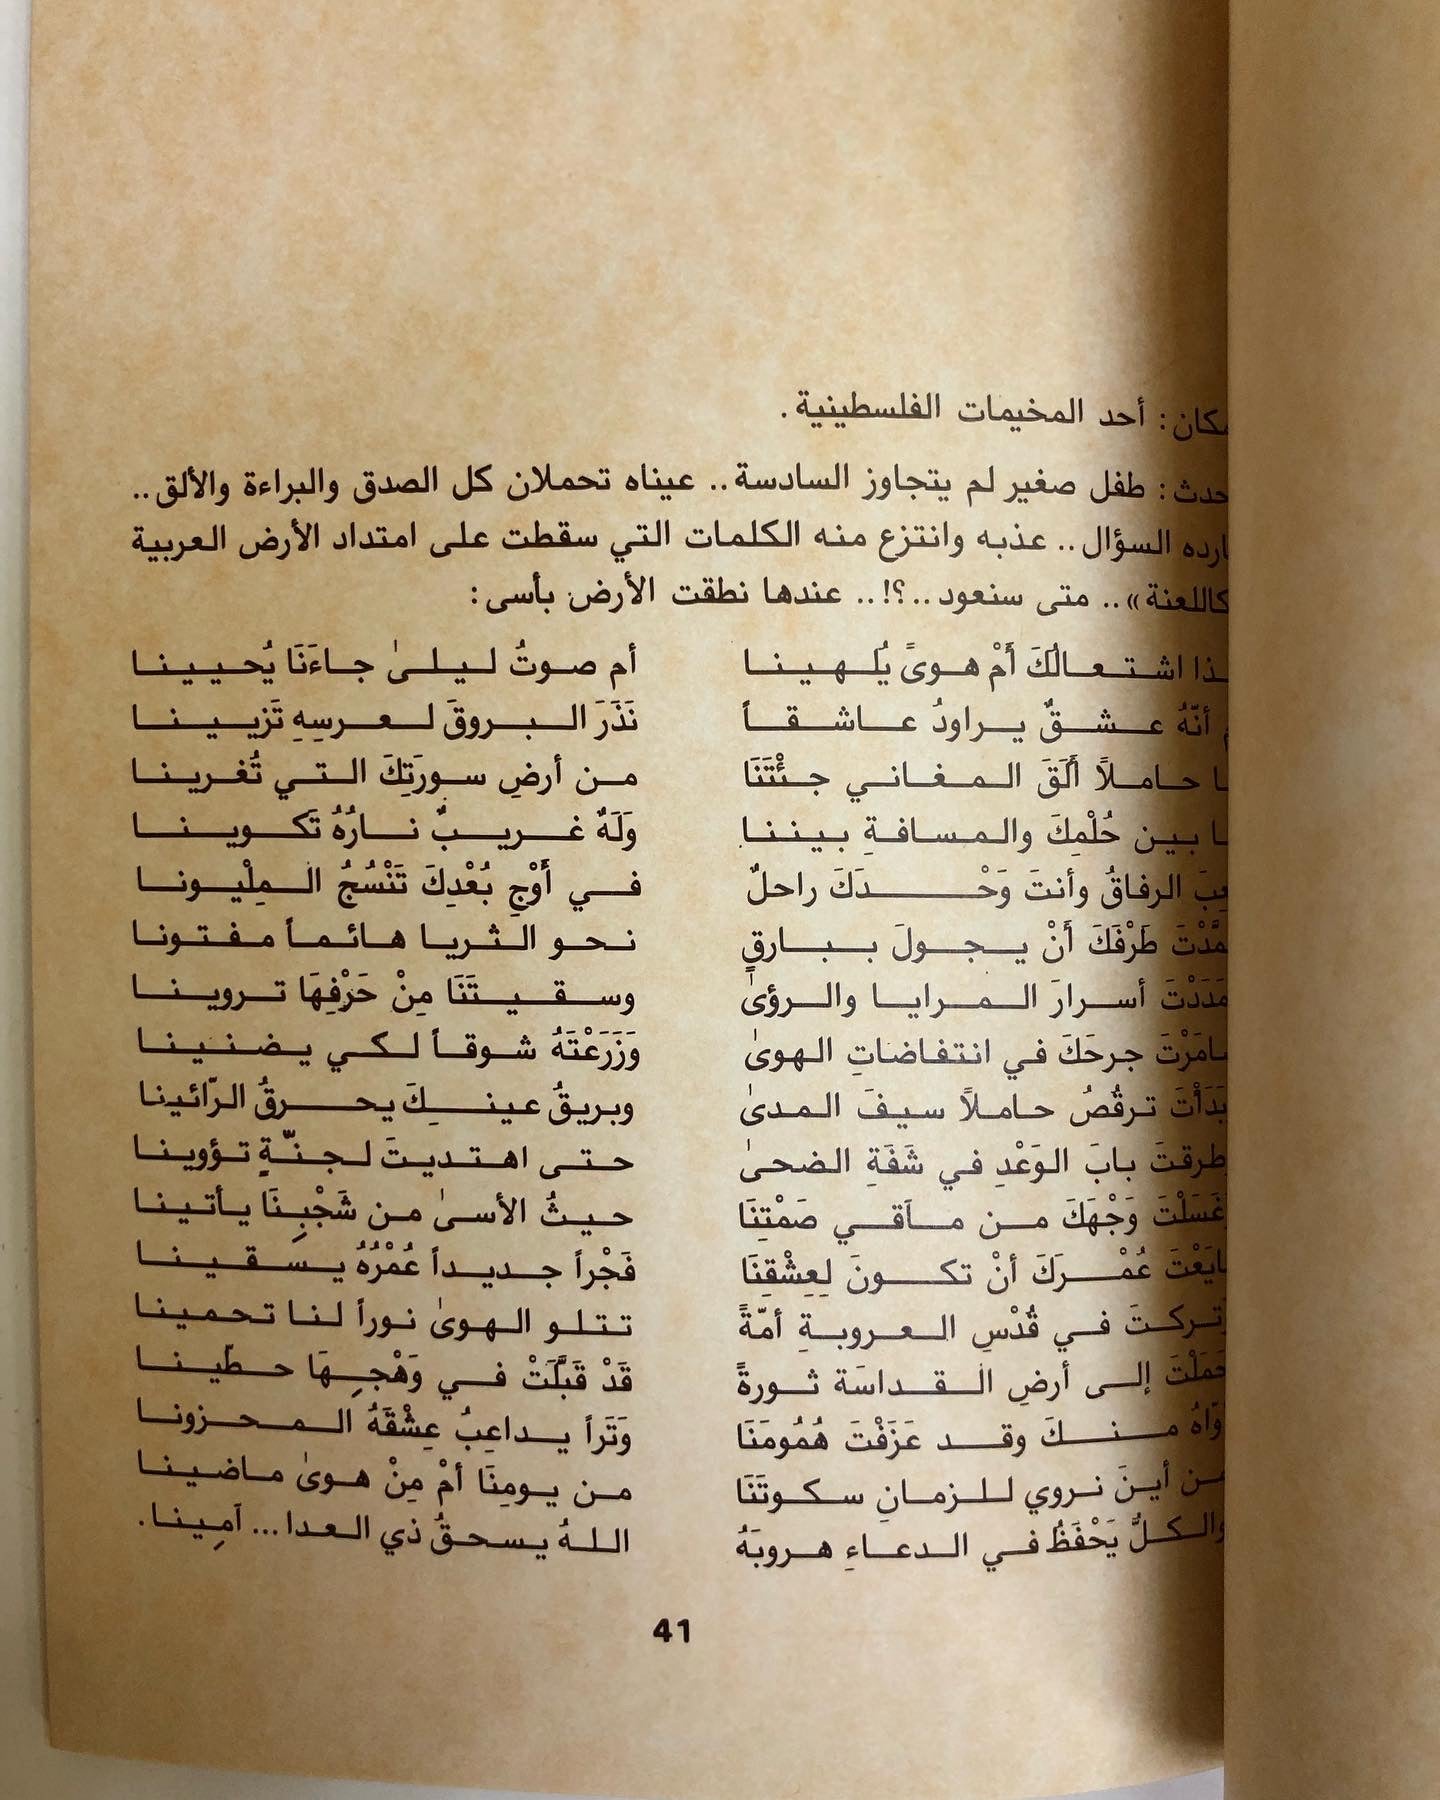 أحد المخيمات الفلسطينية.
طفل صغير لم يتجاوز السادسة.. عيناه تحملان كل الصدق والبراءة والألق..
السؤال.. عذبه وانتزع منه الكلمات التي سقطت على امتداد الأرض العربية
كاللعنة».. متى سنعود..؟!.. عندها نطقت الأرض بأسى:
اشتعالُكَ أَمْ هوىً يُلهينا أم صوتُ ليلىٰ جاءَنَا يُحيينا
أنّهُ عشقٌ يراودُ عاشقاً نَذَرَ البروقَ لعرسِهِ تَزيينا
حاملاً أَلَقَ المغاني جئْتَنَا من أرضِ سورَتِكَ التي تُغرينا
بين حُلْمِكَ والمسافةِ بيننا وَلَهٌ غريبٌ نارُهُ تَكوينا
الرفاقُ وأنتَ وَحْدَكَ راحلٌ في أَوْجِ بُعْدِكَ تَنْسُجُ المِلْيونا
طَرْفَكَ أَنْ يجولَ ببارقٍ نحو الثريا هائماً مفتونا
أسرارَ المرايا والرؤىٰ وسقيتَنَا مِنْ حَرْفِهَا تروينا
جرحَكَ في انتفاضاتِ الهوىٰ وَزَرَعْتَهُ شوقاً لكي يضنينا
بَدَأْتَ ترقُصُ حاملاً سيفَ المدىٰ وبريقُ عينكِ يحرقُ الرّائينا
طرقتَ بابَ الوَعْدِ في شَفَةِ الضحىٰ حتى اهتديتَ لجنّةٍ تؤوينا
غَسَلْتَ وَجْهَكَ من مآقي صَمْتِنَا حيثُ الأسىٰ من شَجْبِنَا يأتينا
عُمْرَكَ أنْ تكونَ لِعِشْقِنَا فَجْراً جديداً عُمْرُهُ يسقينا
تركتَ في قُدْسِ العروبةِ أمّةً تتلو الهوىٰ نوراً لنا تحمينا
حَمَلْتَ إلى أرضِ القداسَة ثورةً قَدْ قَبَّلَتْ في وَهْجِهَا حطّينا
منكَ وقد عَزَفْتَ هُمُومَنَا وَتَراً يداعِبُ عِشْقَهُ المحزونا
من أينَ نروي للزمانِ سكوتَنَا من يومِنَا أمْ مِنْ هوىٰ ماضينا
والكلُّ يَحْفَظُ في الدعاءِ هروبَهُ اللهُ يسحقُ ذي العدا... آمِينا.
41